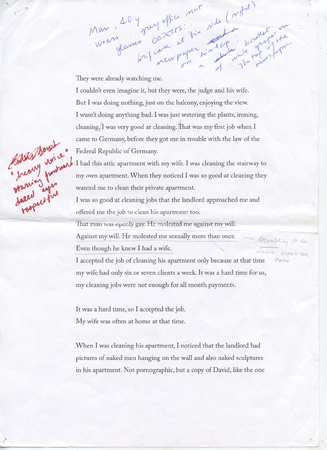 Man, 40 y
wears grey office suit
glasses
briefcase at his side (right)
newspaper
on his lap.
They were already watching me.
I couldn't even imagine it, but they were, the judge and his wife.
But I was doing nothing, just on the balcony, enjoying the view.
I wasn't doing anything bad. I was just watering the plants, ironing,
cleaning. I was very good at cleaning. That was my first job when I
came to Germany, before they got me in trouble with the law of the
Federal Republic of Germany.
I had this attic apartment with my wife. I was cleaning the stairway to
my own apartment. When they noticed I was so good at cleaning they
wanted me to clean their private apartment.
I was so good at cleaning jobs that the landlord approached me and
offered me the job to clean his apartment too.
That man was openly gay. He molested me against my will.
Against my will. He molested me sexually more than once.
Even though he knew I had a wife.
I accepted the job of cleaning his apartment only because at that time
my wife had only six or seven clients a week. It was a hard time for us,
my cleaning jobs were not enough for all month payments.
It was a hard time, so I accepted the job.
My wife was often at home at that time.
When I was cleaning his apartment, I noticed that the landlord had
pictures of naked men hanging on the wall and also naked sculptures
in his apartment. Not pornographic, but a copy of David, like the one
"heavy voice"
starring
eyes
respectful